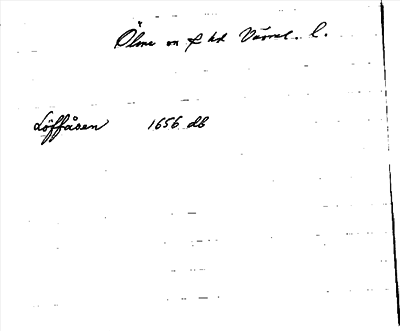 Ölme sn o hd Värml. l.
Löffåsen 1656 db